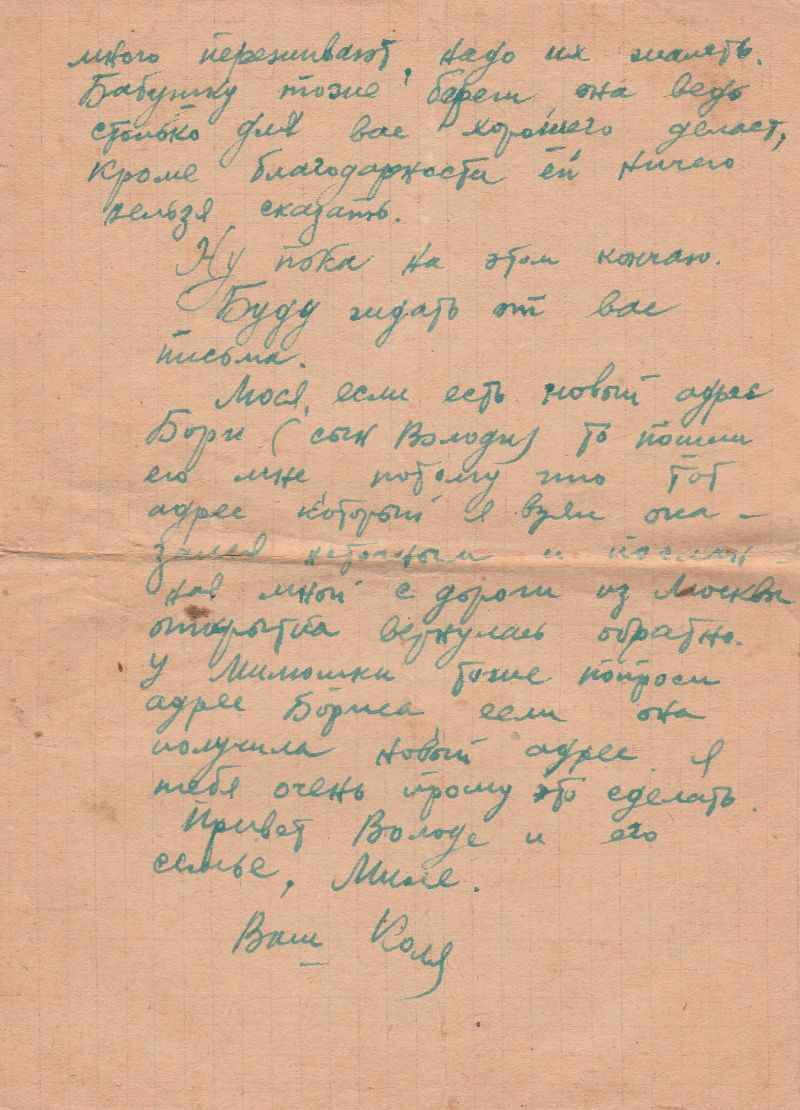 много переживают, надо их жалеть.
Бабушку тоже береги, она ведь
столько для вас хорошего делает,
кроме благодарности ей ничего
нельзя сказать.
Ну пока на этом кончаю.
Буду жидать от вас
письма.
Мося, если есть новый адрес
Бори (сын Володи) то пошли
его мне потому что тот
адрес который я взял ока-
зался неточным и послан-
ная мной с дороги из Москвы
открытка вернулась обратно.
У Милюшки тоже попроси
адрес Бориса, если она
получила новый адрес. Я
тебя очень прошу это сделать.
Привет Володе и его
семье, Миле.
Ваш Коля